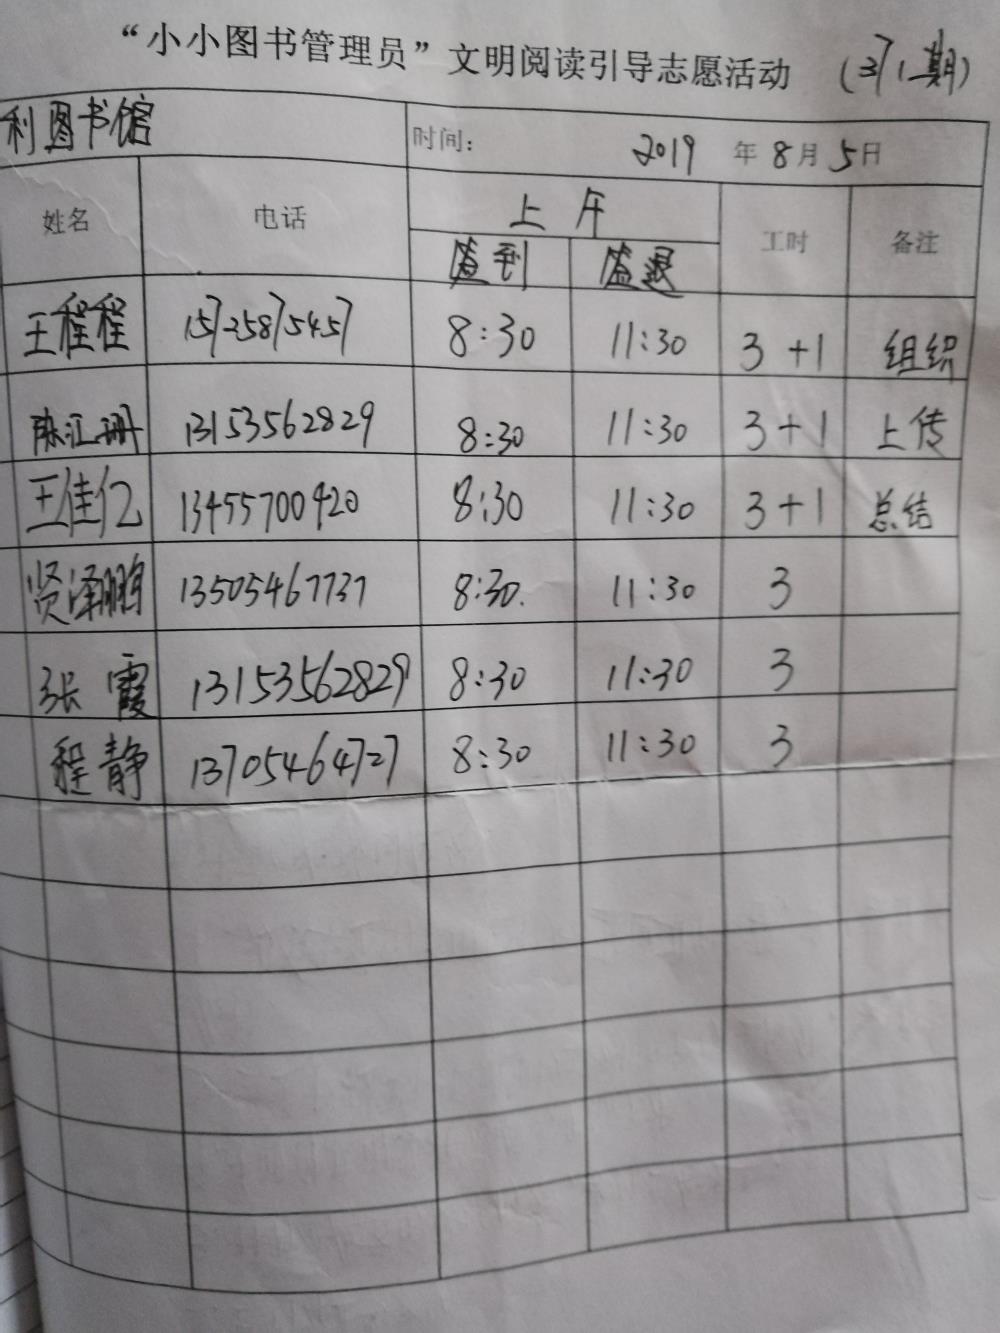 “小小图书管理员”文明阅读引导志愿活动 (371期)
利图书馆 时间: 2019 年 8 月 5 日
姓名 电话 上午 工时 备注
签到 签退
王程程 15725875457 8:30 11:30 3+1 组织
陈汇珊 13153562829 8:30 11:30 3+1 上传
王佳亿 13455700920 8:30 11:30 3+1 总结
贤泽鹏 13505467737 8:30. 11:30 3
张霞 13153562829 8:30 11:30 3
程静 13705464727 8:30 11:30 3